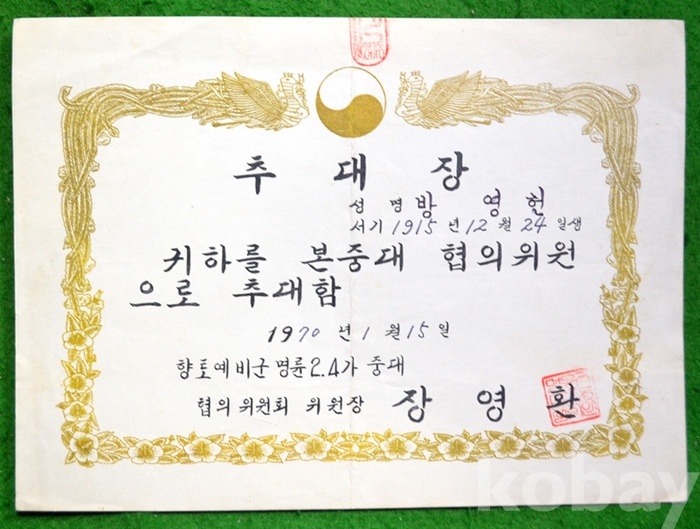 추 대 장
성 명 방 영 헌
서기 1915 년 12 월 24 일생
귀하를 본중대 협의위원
으로 추대함
1970 년 1 월 15 일
향토예비군 명륜2.4가 중대
협의위원회 위원장 장 영 환
kobay